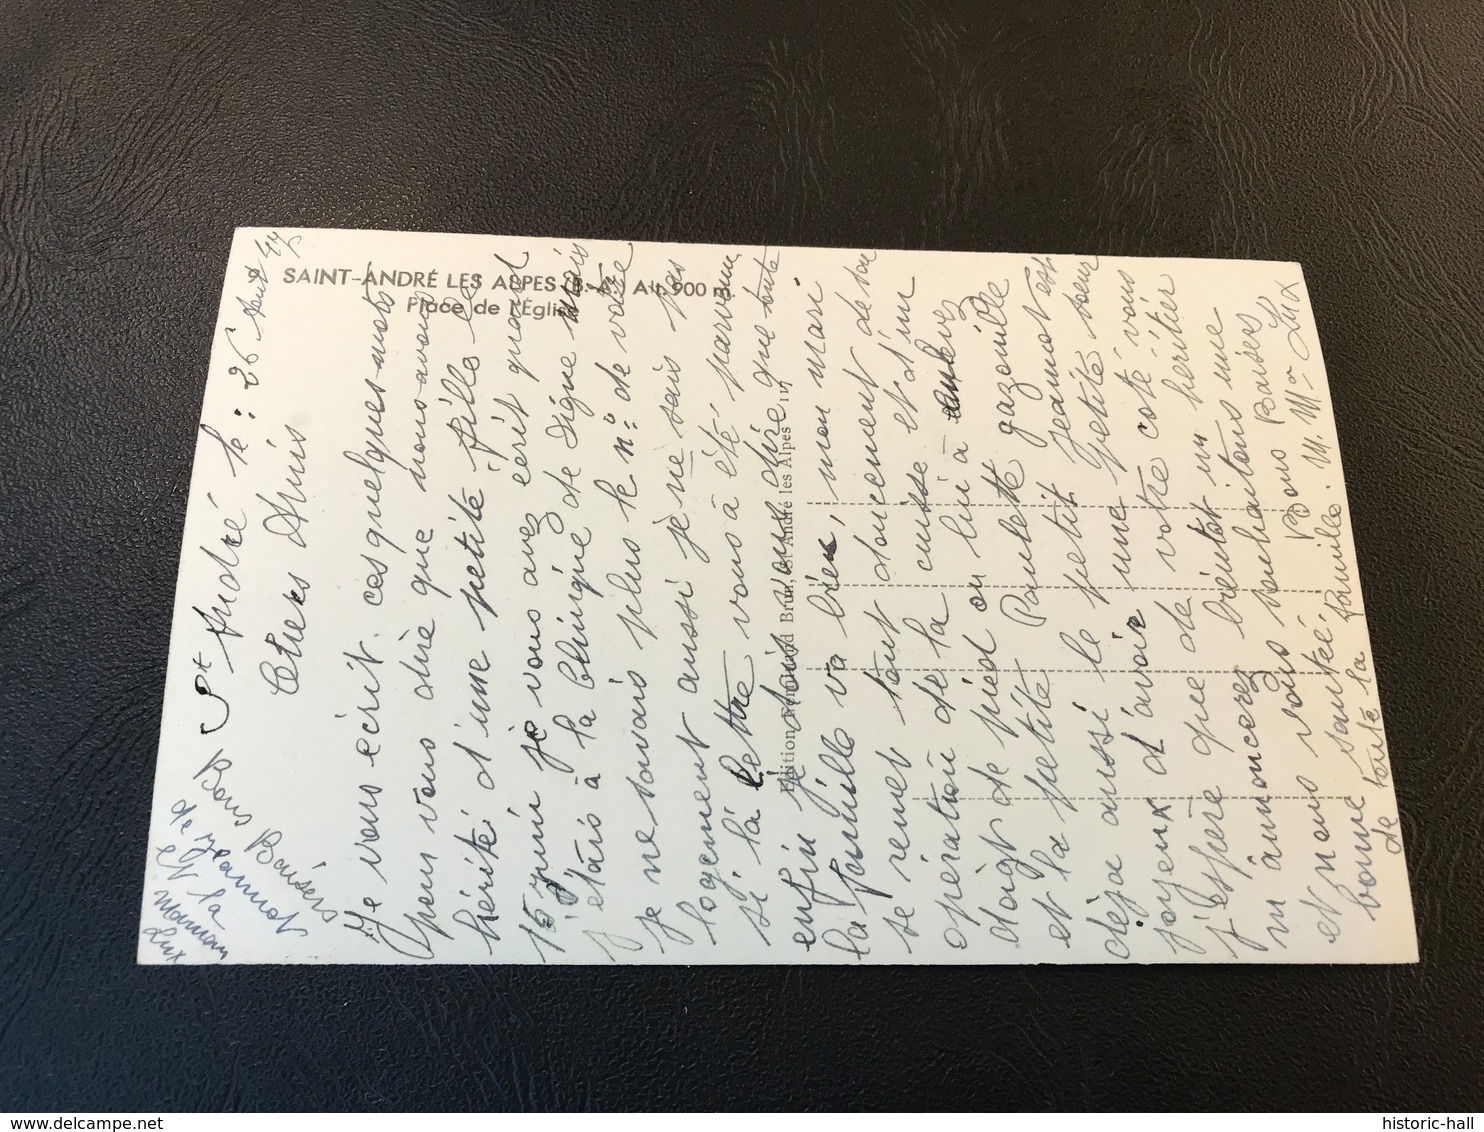 SAINT-ANDRÉ LES ALPES (B.-A.) Alt. 900 m.
Place de l'Église
Edition Brun, St André les Alpes
St André le : 26 Aout
Chers Amis
Je vous écrit ces quelques mots
pour vous dire que nous avons
hérité d'une petite fille le
15 juin je vous avez écrit quand
j'étais à la clinique de Digne mais
je ne savais plus le n° de votre
logement aussi je ne sais pas
si la lettre vous à été parvenu
enfin je dois vous dire que toute
la famille va bien, mon mari
se remet tout doucement de son
opération de la cuisse et d'un
doigt de pied on lui à
et la petite Paulette gazouille
dèja aussi le petit Jeannot est
joyeux d'avoir une petite soeur
j'espère que de votre coté vous
m'annoncerez bientot un héritier
nous vous souhaitons une
et bonne santé. Bons Baisers
de toute la famille. M. Mme Lux
Bons Baisers
de Jeannot
et la
Maman
Lux
historic-hall